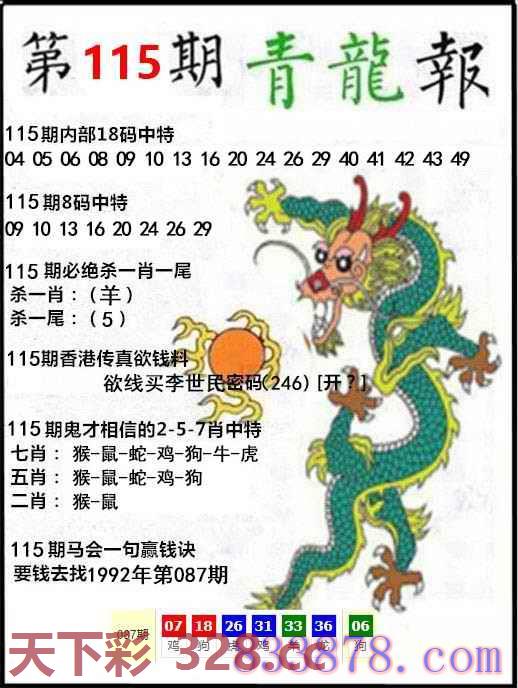 第115期青龍報
115期内部18码中特
04 05 06 08 09 10 13 16 20 24 26 29 40 41 42 43 49
115期8码中特
09 10 13 16 20 24 26 29
115期必绝杀一肖一尾
杀一肖：（羊）
杀一尾：（5）
115期香港传真欲钱料
欲线买李世民密码(246) [开？]
115期鬼才相信的2-5-7肖中特
七肖：猴-鼠-蛇-鸡-狗-牛-虎
五肖：猴-鼠-蛇-鸡-狗
二肖：猴-鼠
115期马会一句赢钱诀
要钱去找1992年第087期
087期 07 18 26 31 33 36 06
鸡 狗 鸡 羊 龙 狗
天下彩 328.cc
833878.com